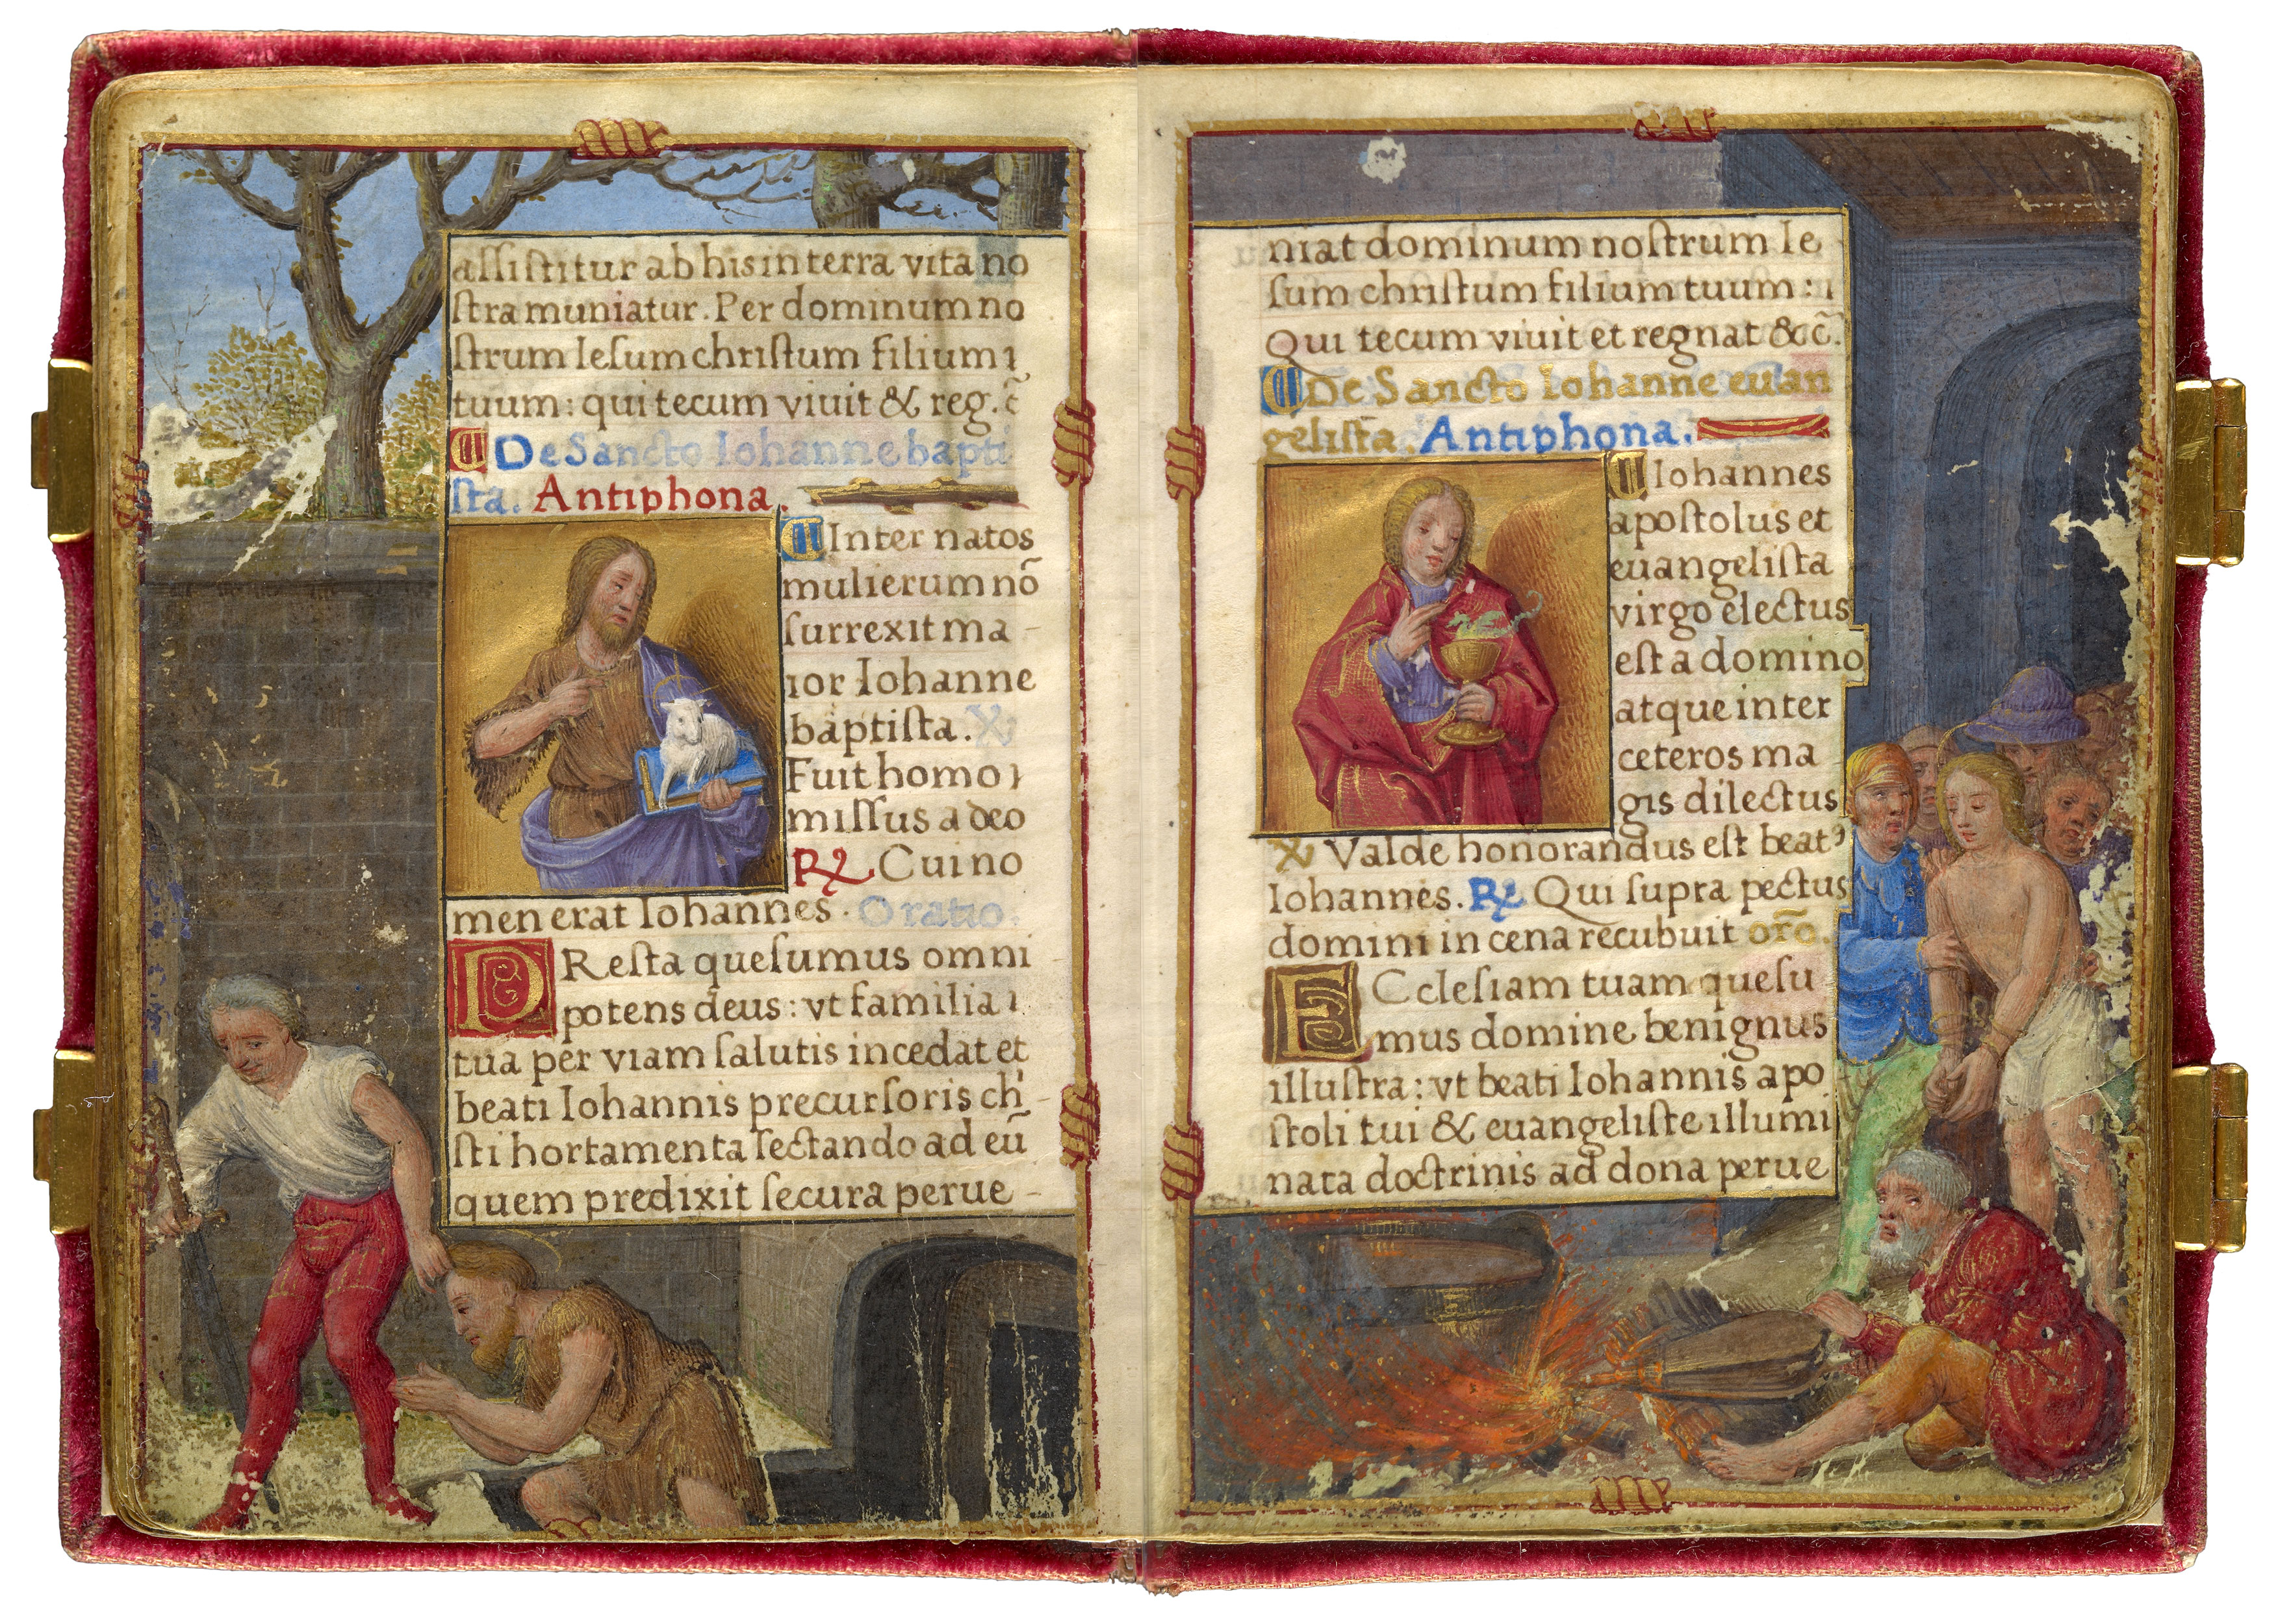 assistitur ab his in terra vita no
stra muniatur. Per dominum no
strum Iesum christum filium
tuum: qui tecum viuit & reg. c̃
De Sancto Iohanne bapti
sta. Antiphona.
Inter natos
mulierum nõ
surrexit ma-
ior Iohanne
baptista. ℣
Fuit homo
missus a deo
℟ Cui no
men erat Iohannes. Oratio.
PResta quesumus omni
potens deus: vt familia
tua per viam salutis incedat et
beati Iohannis precursoris ch̃ri-
sti hortamenta sectando ad eũ
quem predixit secura perue-
niat dominum nostrum Ie
sum christum filium tuum:
Qui tecum viuit et regnat &c̃.
De Sancto Iohanne euan
gelista. Antiphona.
Iohannes
apostolus et
euangelista
virgo electus
est a domino
atque inter
ceteros ma
gis dilectus
℣ Valde honorandus est beatꝰ
Iohannes. ℟ Qui supra pectus
domini in cena recubuit orõ.
ECclesiam tuam quesu
mus domine benignus
illustra: vt beati Iohannis apo
stoli tui & euangeliste illumi
nata doctrinis ad dona perue